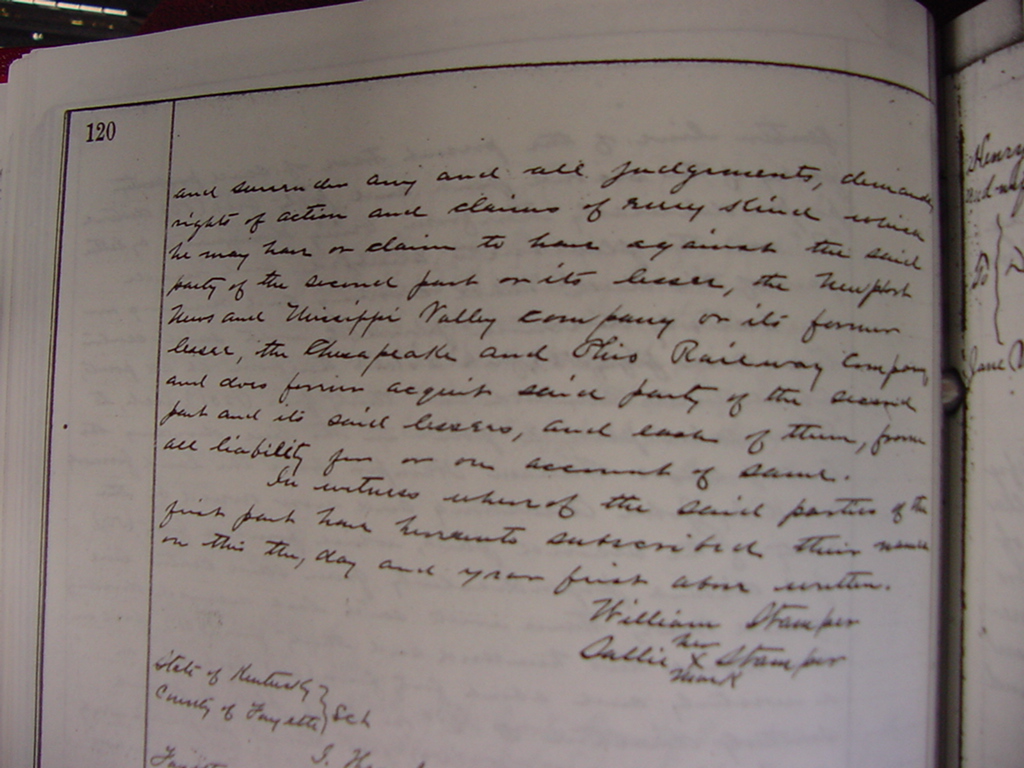 120
and surrender any and all judgements, demands
rights of action and claims of every kind which
he may have or claim to have against the said
party of the second part or its lessee, the Newport
News and Missippi Valley Company or its former
lessee, the Chesapeake and Ohio Railway Company
and does forever acquit said party of the second
part and its said lessees, and each of them, from
all liability for or on account of same.
In witness whereof the said parties of the
first part have hereunto subscribed their names
on this the, day and year first above written.
William Stamper
her
Sallie X Stamper
mark
State of Kentucky }
County of Fayette } Sct
Henry
To
Jane